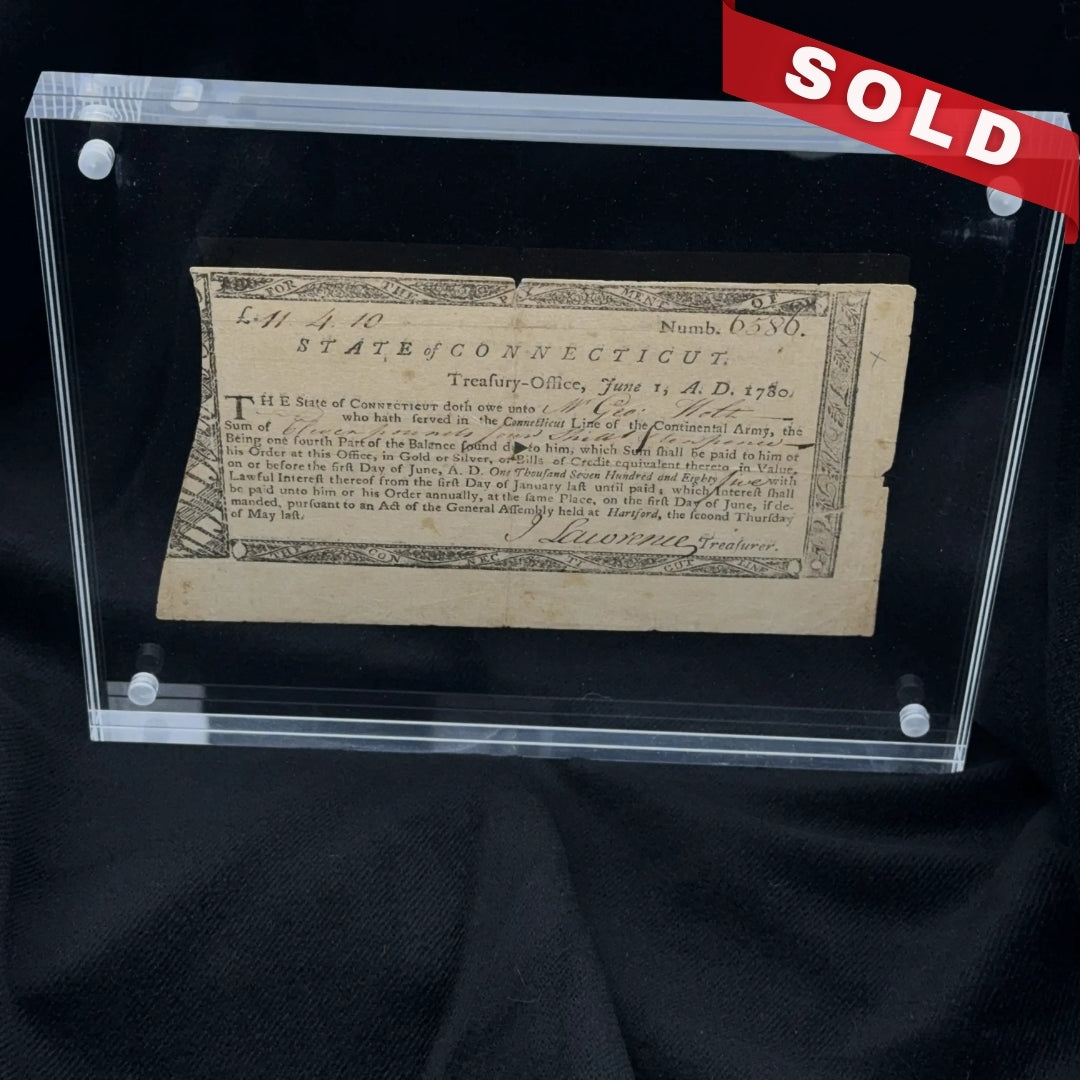 SOLD
FOR THE PAYMENT OF
£.11 4 10
Numb. 6386.
STATE of CONNECTICUT.
Treaſury-Office, June 1, A. D. 1780.
THE State of CONNECTICUT doth owe unto Mr Geo:
who hath ſerved in the Connecticut Line of the Continental Army, the
Sum of Eleven pounds four Shills & ten pence
Being one fourth Part of the Balance found due to him, which Sum ſhall be paid to him or
his Order at this Office, in Gold or Silver, or Bills of Credit equivalent thereto in Value,
on or before the firſt Day of June, A. D. One Thouſand Seven Hundred and Eighty five with
Lawful Intereſt thereof from the firſt Day of January laſt until paid; which Intereſt ſhall
be paid unto him or his Order annually, at the ſame Place, on the firſt Day of June, if de-
manded, purſuant to an Act of the General Aſſembly held at Hartford, the ſecond Thurſday
of May laſt.
J Lawrence Treaſurer.
THE CON NEC TI CUT LINE